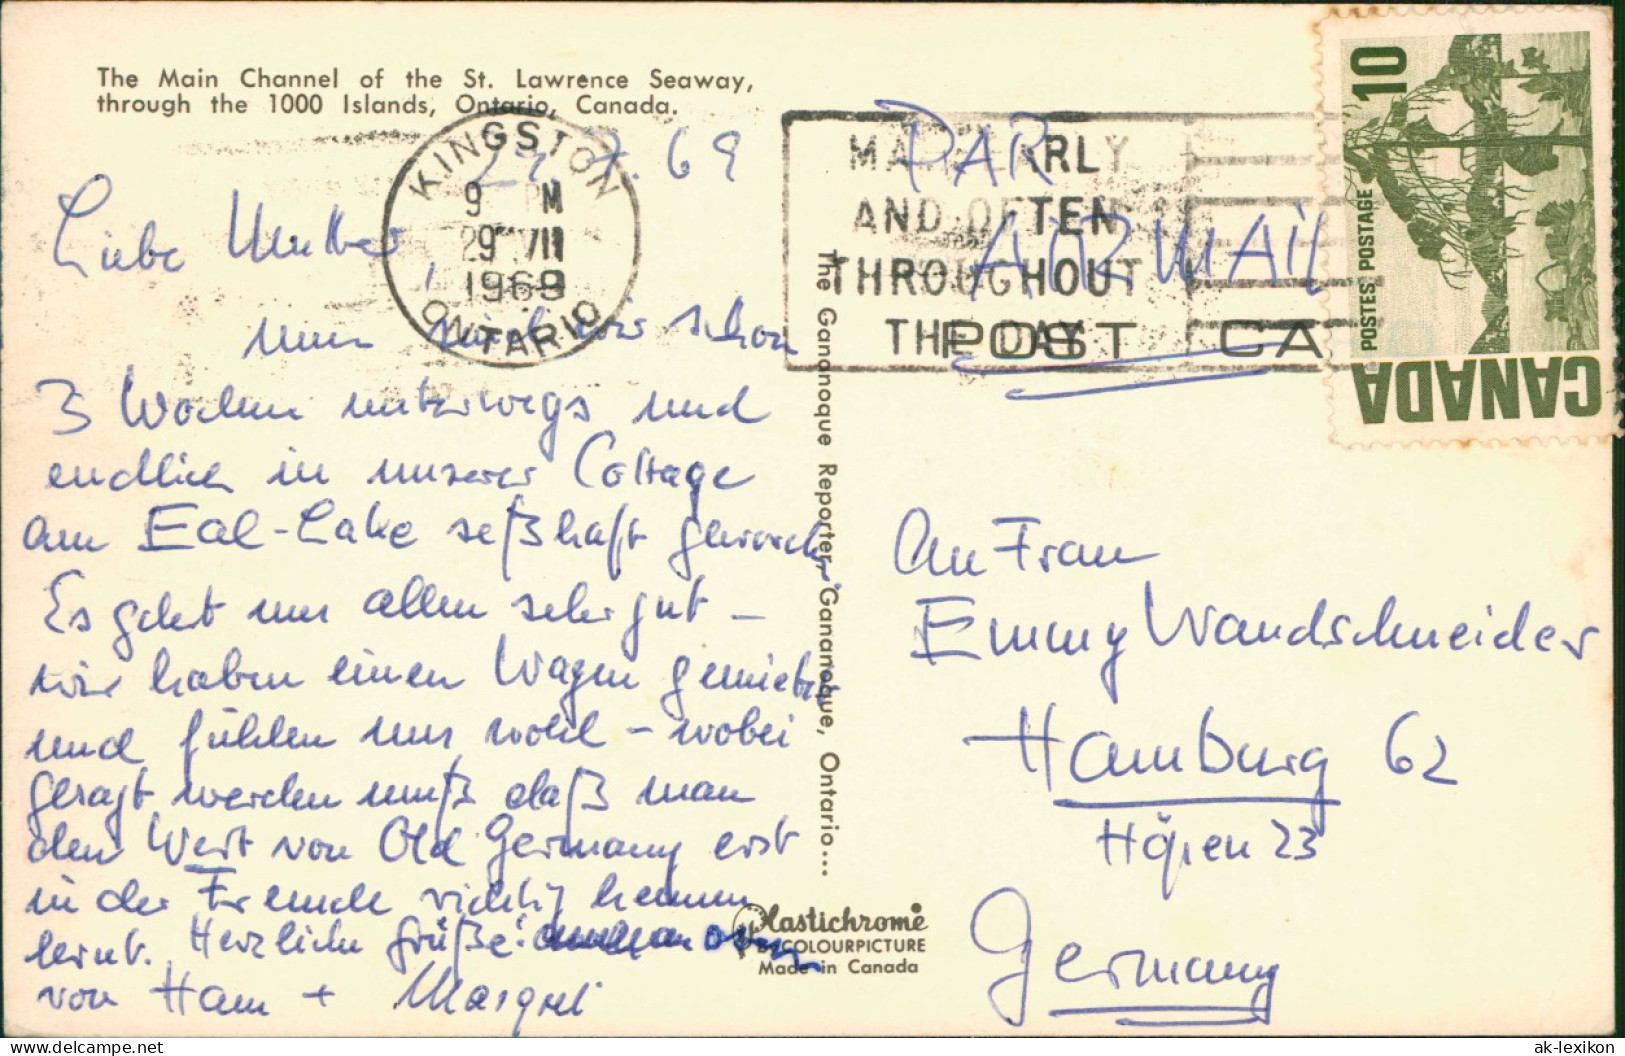 The Main Channel of the St. Lawrence Seaway,
through the 1000 Islands, Ontario, Canada.
KINGSTON
9 PM
29 VII
1969
ONTARIO
MAIL EARLY
AND OFTEN
THROUGHOUT
THE DAY
PAR
AIR MAIL
POST CA
10
POSTES POSTAGE
CANADA
7. 69
Liebe Mutter,
nun sind wir schon
3 Wochen unterwegs und
endlich in unserer Cottage
am Eal-Lake seßhaft geworden.
Es geht uns allen sehr gut –
wir haben einen Wagen gemietet
und fühlen uns wohl – wobei
gesagt werden muß daß man
den Wert von Old Germany erst
in der Fremde richtig kennen
lernt. Herzliche Grüße
von Ham + Margret
The Gananoque Reporter, Gananoque, Ontario...
Plastichrome
COLOURPICTURE
Made in Canada
An Frau
Emmy Wandschneider
Hamburg 62
23
Germany
delcampe.net
ak-lexikon